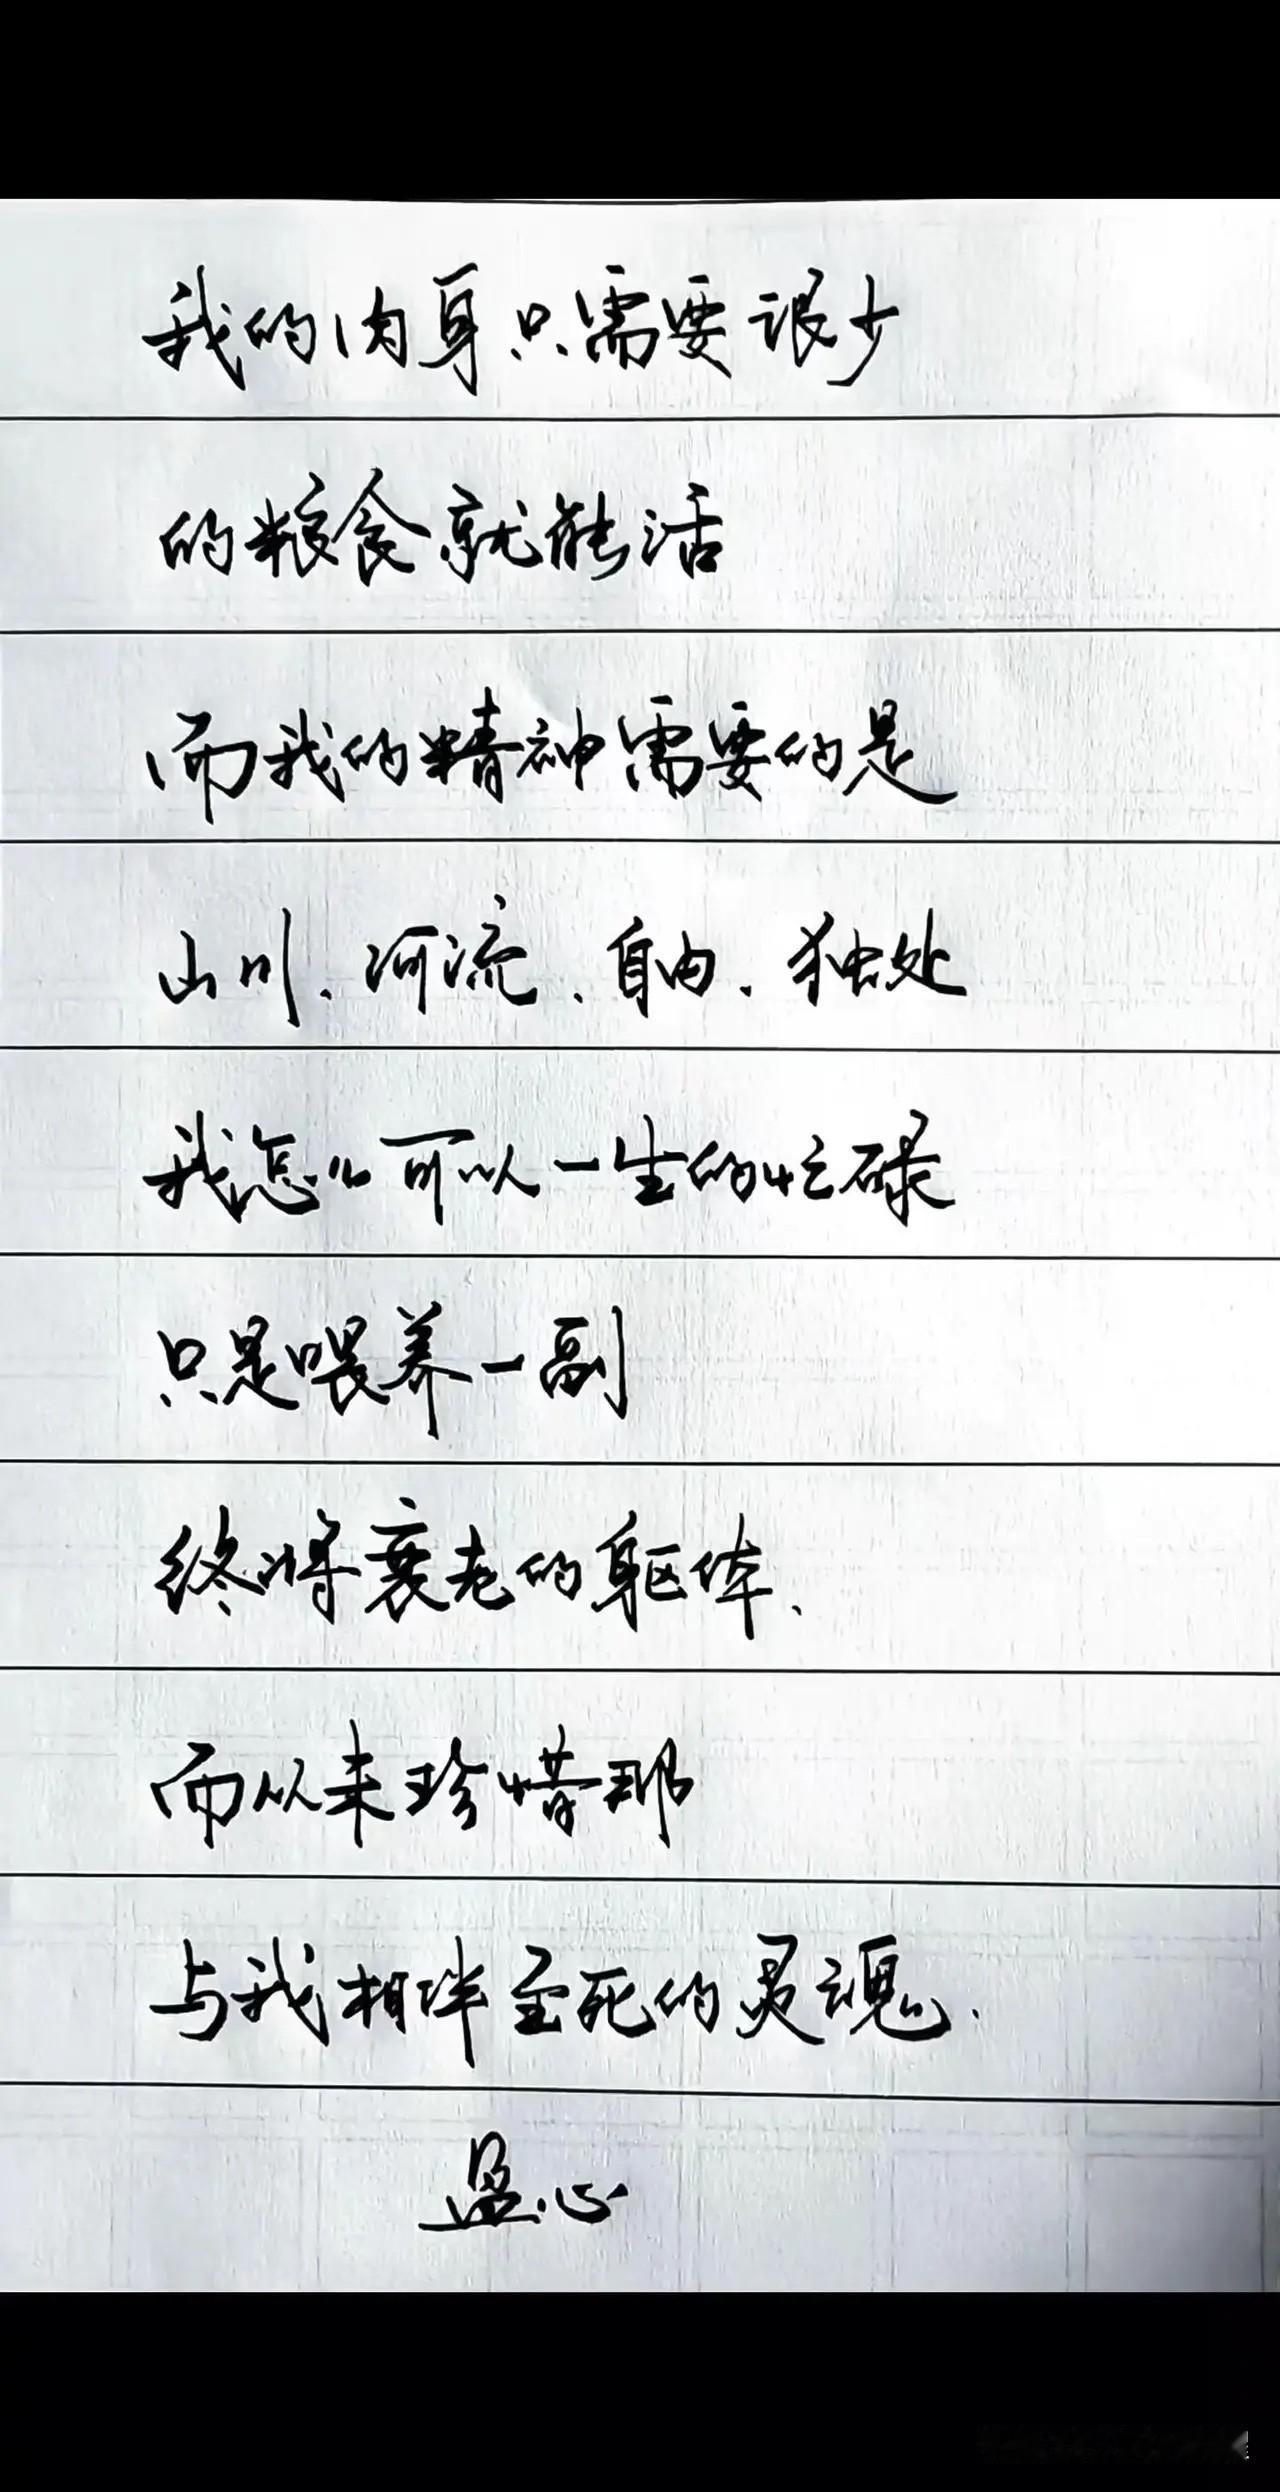 我的肉身只需要很少
的粮食就能活
而我的精神需要的是
山川、河流、自由、独处
我怎么可以一生的忙碌
只是喂养一副
终将衰老的躯体、
而从来珍惜那
与我相伴至死的灵魂.
盈心